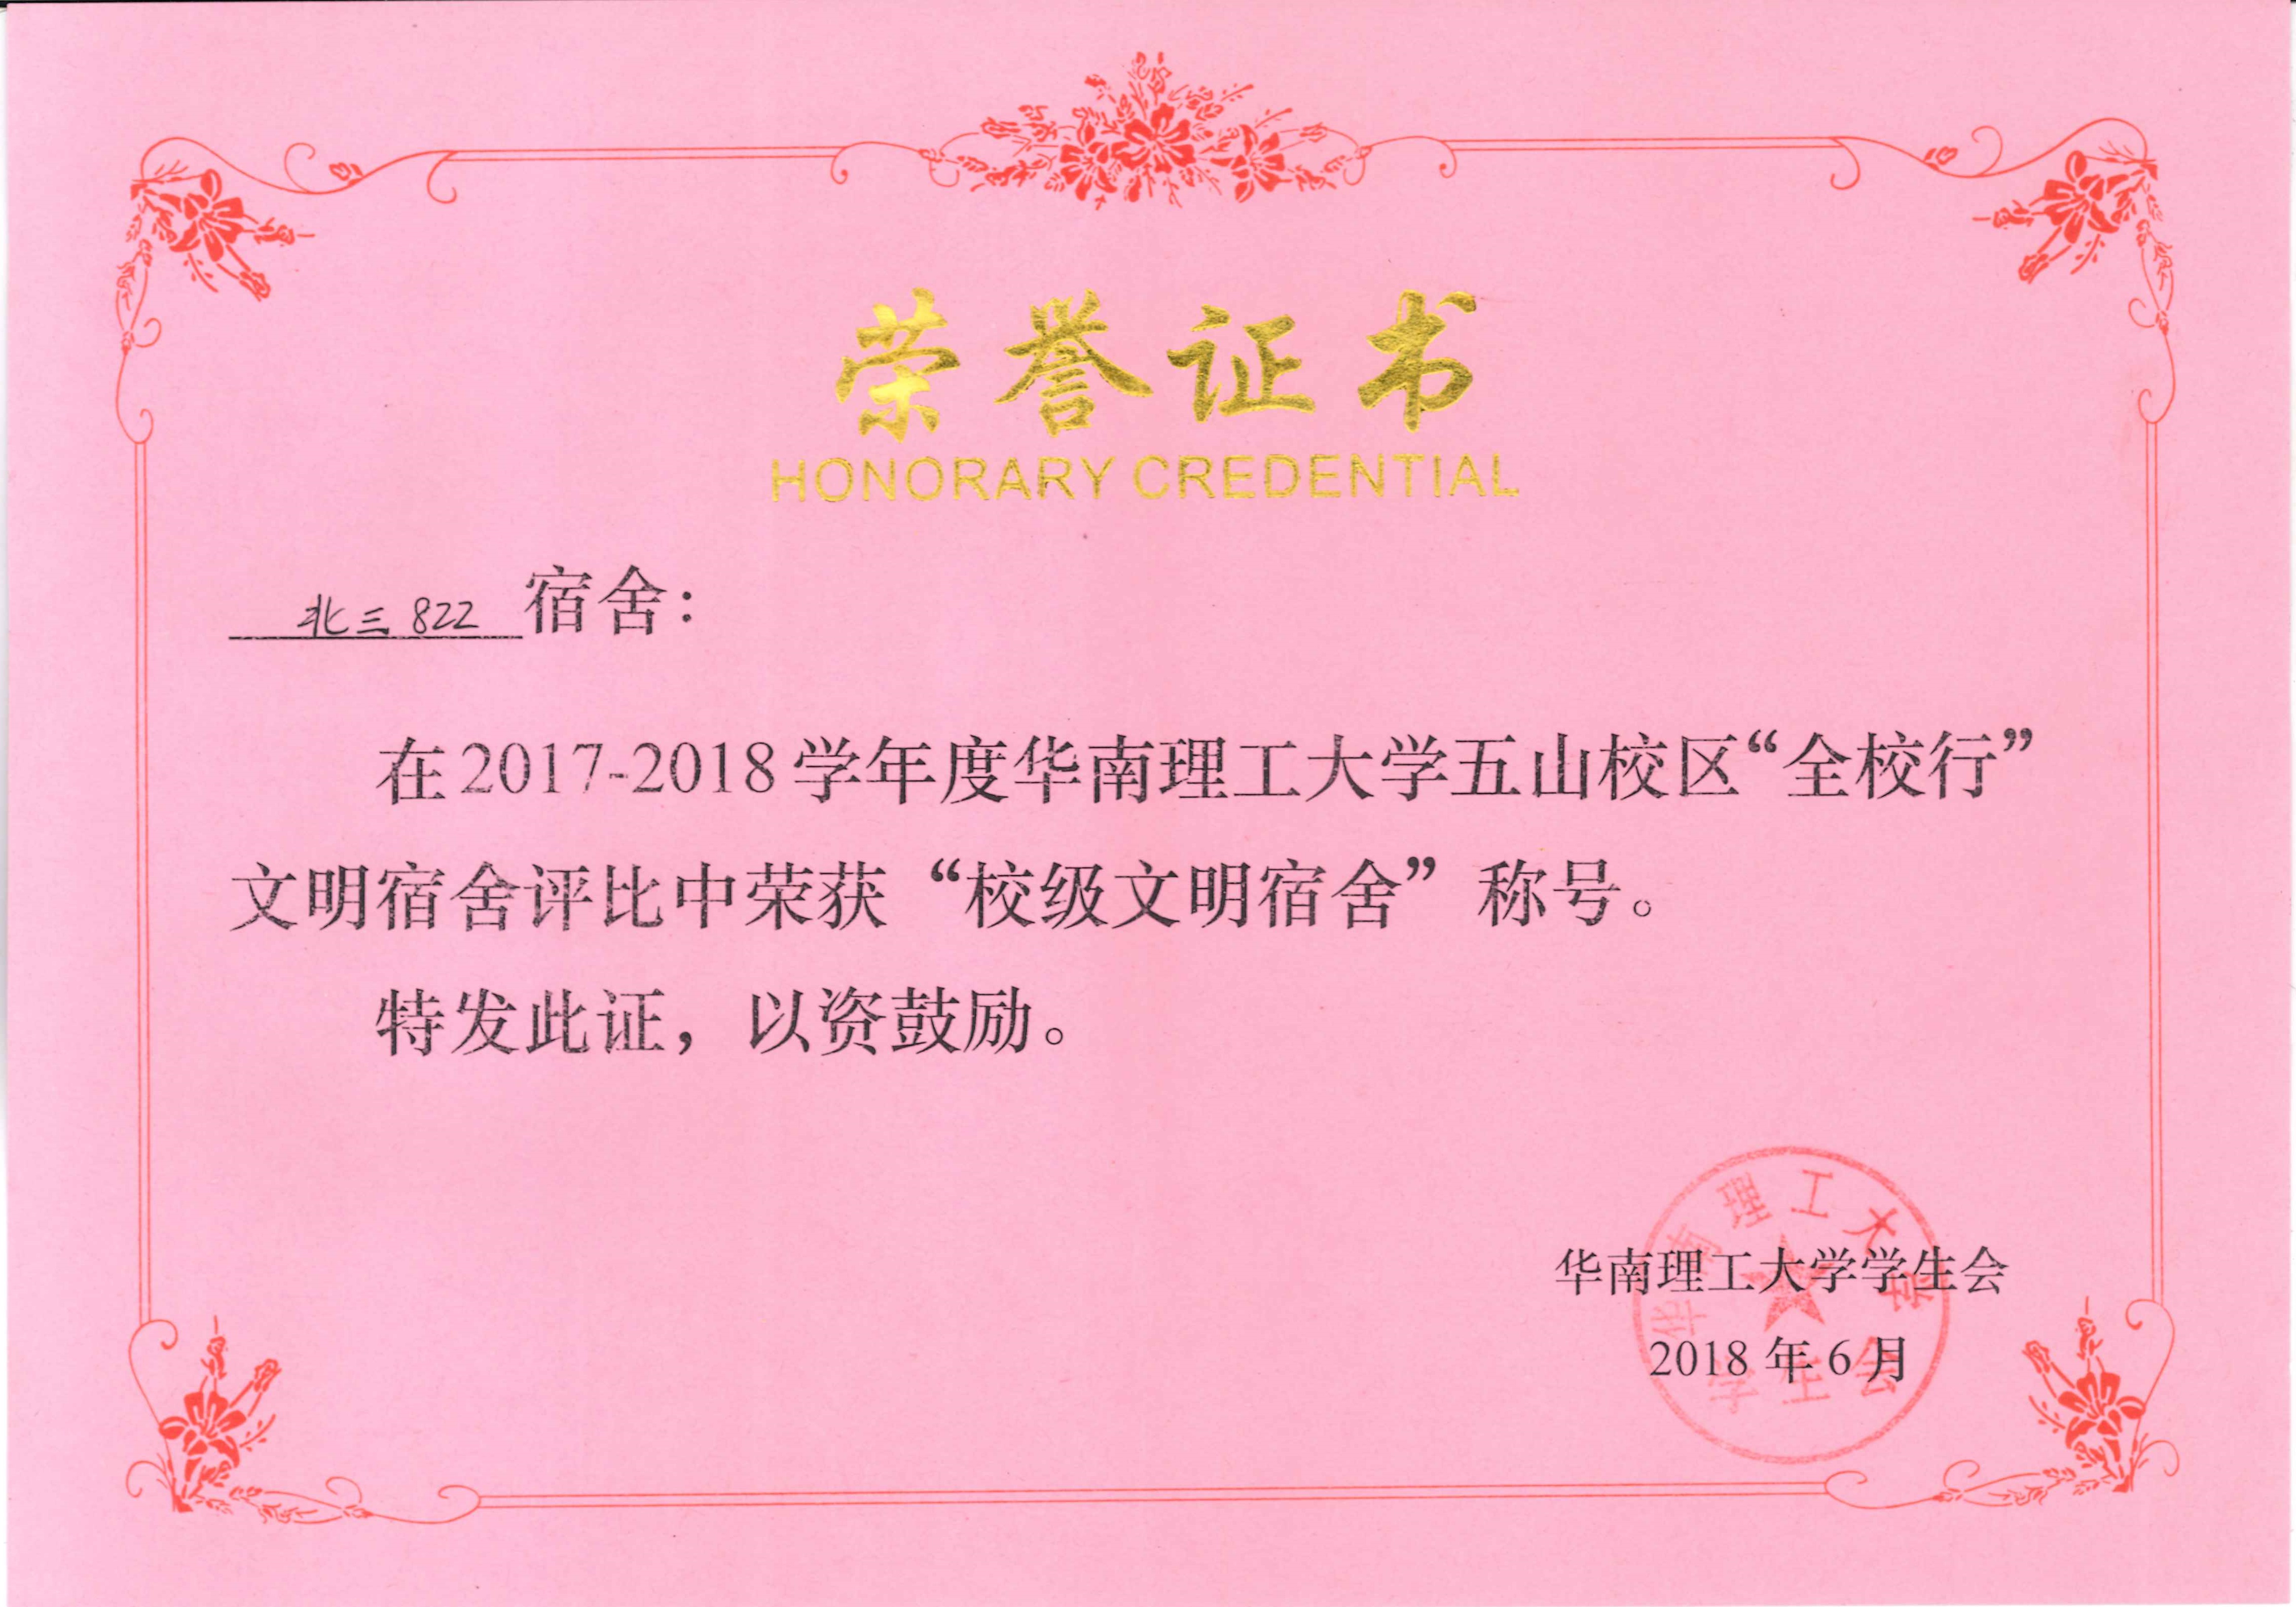 荣誉证书
HONORARY CREDENTIAL
北三822宿舍：
在2017-2018学年度华南理工大学五山校区“全校行”
文明宿舍评比中荣获“校级文明宿舍”称号。
特发此证，以资鼓励。
华南理工大学学生会
2018年6月
华南理工大学
学生会